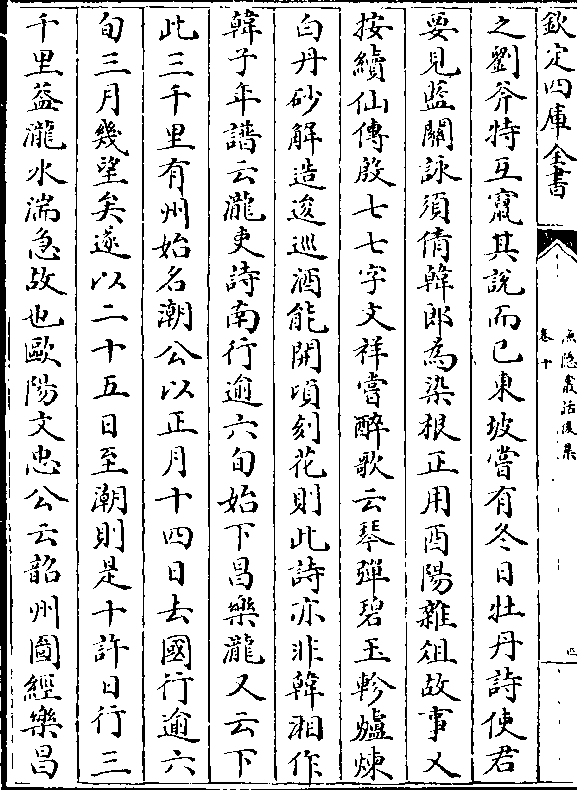 欽定四庫全書
漁隱叢話後集
卷十
四
之劉斧特互竄其說而已東坡嘗有冬日牡丹詩使君
要見藍關詠須倩韓郎為染根正用酉陽雜俎故事又
按續仙傳殷七七字文祥嘗醉歌云琴彈碧玉軫爐煉
白丹砂解造逡巡酒能開頃刻花則此詩亦非韓湘作
韓子年譜云瀧吏詩南行逾六旬始下昌樂瀧又云下
此三千里有州始名潮公以正月十四日去國行逾六
旬三月幾望矣遂以二十五日至潮則是十許日行三
千里葢瀧水湍急故也歐陽文忠公云韶州圖經樂昌